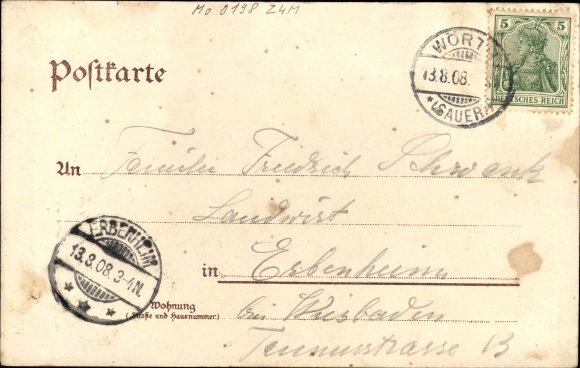 Mo 0198 Z4M
5 5
DEUTSCHES REICH
WÖRTH
13.8.08.
* (SAUER)
Postkarte
An Familie Friedrich Schrank
Landwirt
ERBENHEIM
13.8.08.3-4N.
in Erbenheim
Wohnung
(Straße und Hausnummer.)
bei Wiesbaden
Taunusstrasse 13